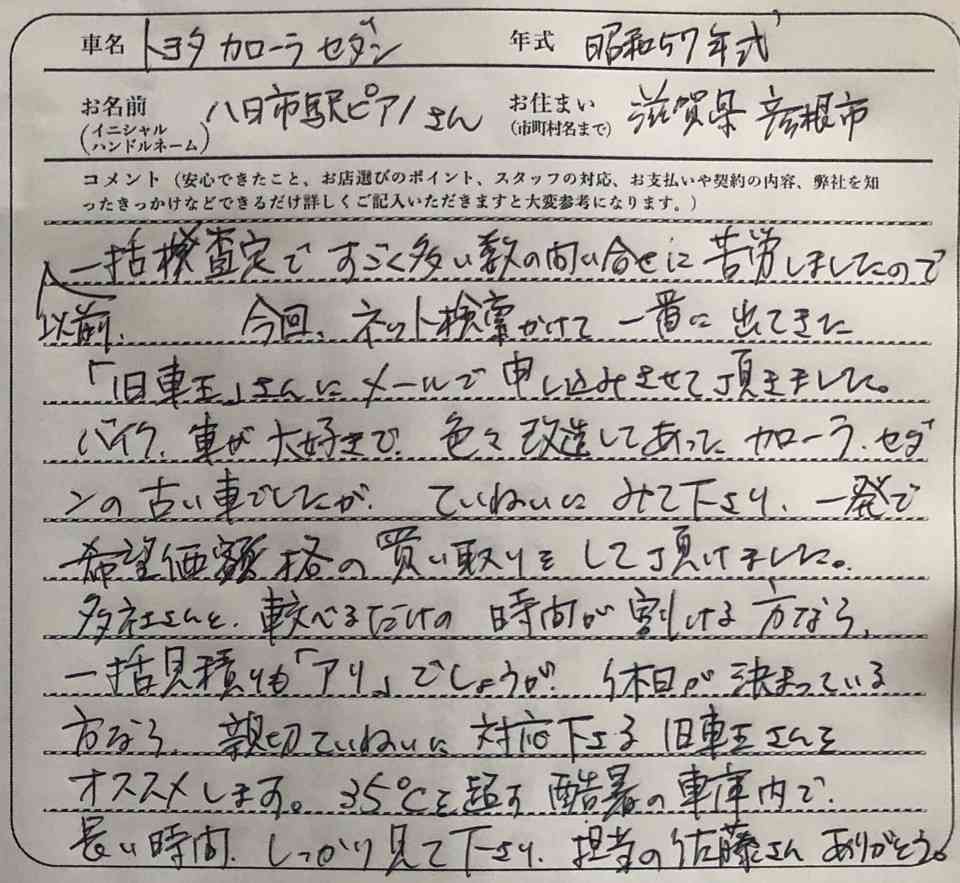 車名 トヨタ カローラ セダン 年式 昭和57年式
お名前 (イニシャル ハンドルネーム) 八日市駅ピアノさん お住まい (市町村名まで) 滋賀県 彦根市
コメント（安心できたこと、お店選びのポイント、スタッフの対応、お支払いや契約の内容、弊社を知
ったきっかけなどできるだけ詳しくご記入いただきますと大変参考になります。）
一括検査定で すごく多い数の問い合せに 苦労しましたので
以前、 今回、ネット検索かけて 一番に 出てきた
「旧車王」さんに メールで 申し込みさせて頂きました。
バイク、車が 大好きで、色々 改造してあった カローラ、セダ
ンの 古い車でしたが、ていねいに みて下さり、一発で
希望価額格の 買い取りを して頂けました。
多社さんと、較べるだけの 時間が 割ける 方なら、
一括見積りも「アリ」でしょうが、休日が 決まっている
方なら、親切ていねいに 対応下さる 旧車王さんを
オススメします。35℃を超す 酷暑の 車庫内で、
長い時間、しっかり見て下さり、担当の佐藤さん ありがとう。